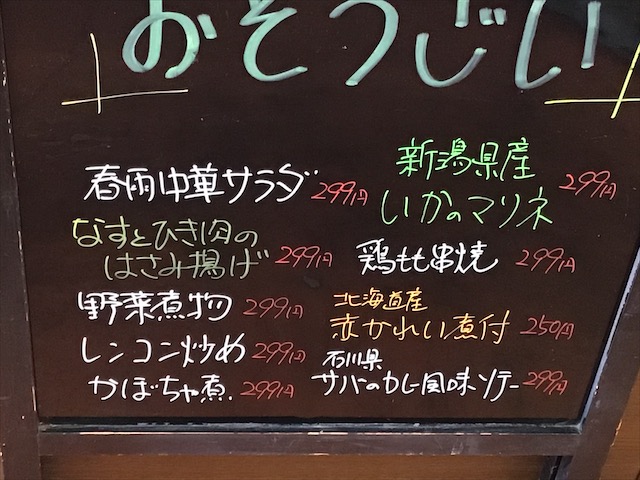 おそうじい
春雨中華サラダ 299円
なすとひき肉の
はさみ揚げ 299円
野菜煮物 299円
レンコン炒め 299円
かぼちゃ煮. 299円
新潟県産
いかのマリネ 299円
鶏もも串焼 299円
北海道産
赤かれい煮付 250円
石川県
サバのカレー風味ソテー 299円